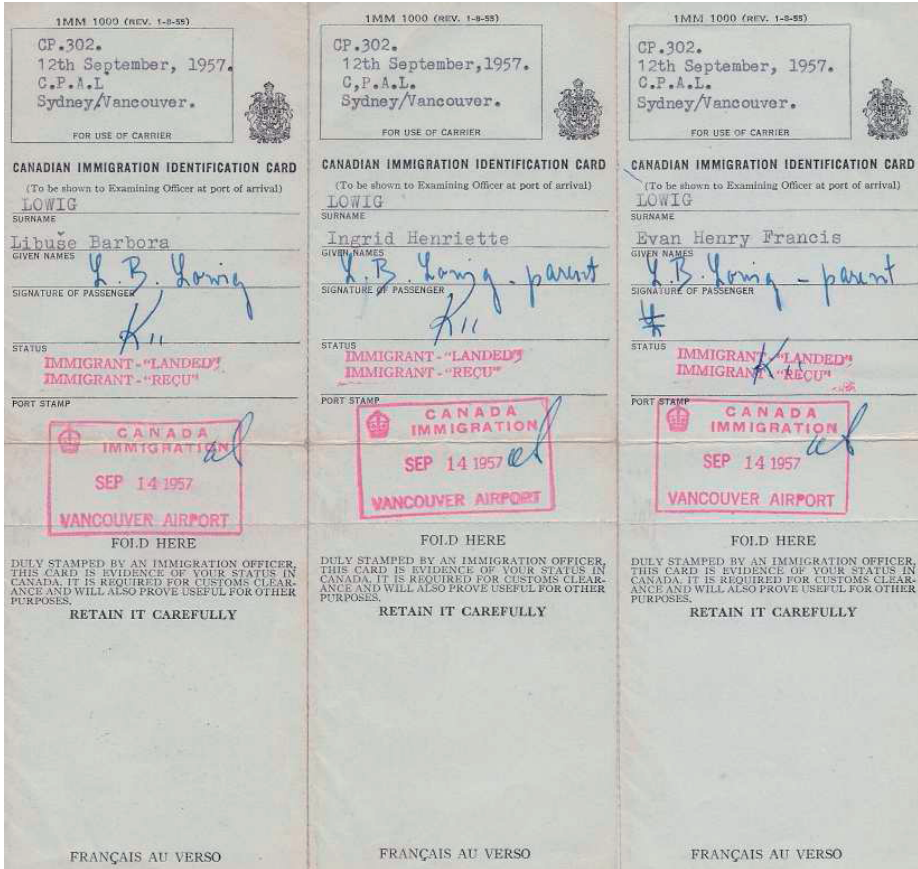 1MM 1000 (REV. 1-8-55)
CP.302.
12th September, 1957.
C.P.A.L
Sydney/Vancouver.
FOR USE OF CARRIER
CANADIAN IMMIGRATION IDENTIFICATION CARD
(To be shown to Examining Officer at port of arrival)
LOWIG
SURNAME
Libuše Barbora
GIVEN NAMES
L. B. Lowig
SIGNATURE OF PASSENGER
K11
STATUS
IMMIGRANT-"LANDED"
IMMIGRANT-"REÇU"
PORT STAMP
CANADA
IMMIGRATION
SEP 14 1957
VANCOUVER AIRPORT
FOLD HERE
DULY STAMPED BY AN IMMIGRATION OFFICER,
THIS CARD IS EVIDENCE OF YOUR STATUS IN
CANADA. IT IS REQUIRED FOR CUSTOMS CLEAR-
ANCE AND WILL ALSO PROVE USEFUL FOR OTHER
PURPOSES.
RETAIN IT CAREFULLY
FRANÇAIS AU VERSO
1MM 1000 (REV. 1-8-55)
CP.302.
12th September,1957.
C,P.A.L.
Sydney/Vancouver.
FOR USE OF CARRIER
CANADIAN IMMIGRATION IDENTIFICATION CARD
(To be shown to Examining Officer at port of arrival)
LOWIG
SURNAME
Ingrid Henriette
GIVEN NAMES
L. B. Lowig - parent
SIGNATURE OF PASSENGER
K11
STATUS
IMMIGRANT-"LANDED"
IMMIGRANT-"REÇU"
PORT STAMP
CANADA
IMMIGRATION
SEP 14 1957
VANCOUVER AIRPORT
FOLD HERE
DULY STAMPED BY AN IMMIGRATION OFFICER,
THIS CARD IS EVIDENCE OF YOUR STATUS IN
CANADA. IT IS REQUIRED FOR CUSTOMS CLEAR-
ANCE AND WILL ALSO PROVE USEFUL FOR OTHER
PURPOSES.
RETAIN IT CAREFULLY
FRANÇAIS AU VERSO
1MM 1000 (REV. 1-8-55)
CP.302.
12th September, 1957.
C.P.A.L.
Sydney/Vancouver.
FOR USE OF CARRIER
CANADIAN IMMIGRATION IDENTIFICATION CARD
(To be shown to Examining Officer at port of arrival)
LOWIG
SURNAME
Evan Henry Francis
GIVEN NAMES
L. B. Lowig - parent
SIGNATURE OF PASSENGER
STATUS
K11
IMMIGRANT-"LANDED"
IMMIGRANT-"REÇU"
PORT STAMP
CANADA
IMMIGRATION
SEP 14 1957
VANCOUVER AIRPORT
FOLD HERE
DULY STAMPED BY AN IMMIGRATION OFFICER,
THIS CARD IS EVIDENCE OF YOUR STATUS IN
CANADA. IT IS REQUIRED FOR CUSTOMS CLEAR-
ANCE AND WILL ALSO PROVE USEFUL FOR OTHER
PURPOSES.
RETAIN IT CAREFULLY
FRANÇAIS AU VERSO